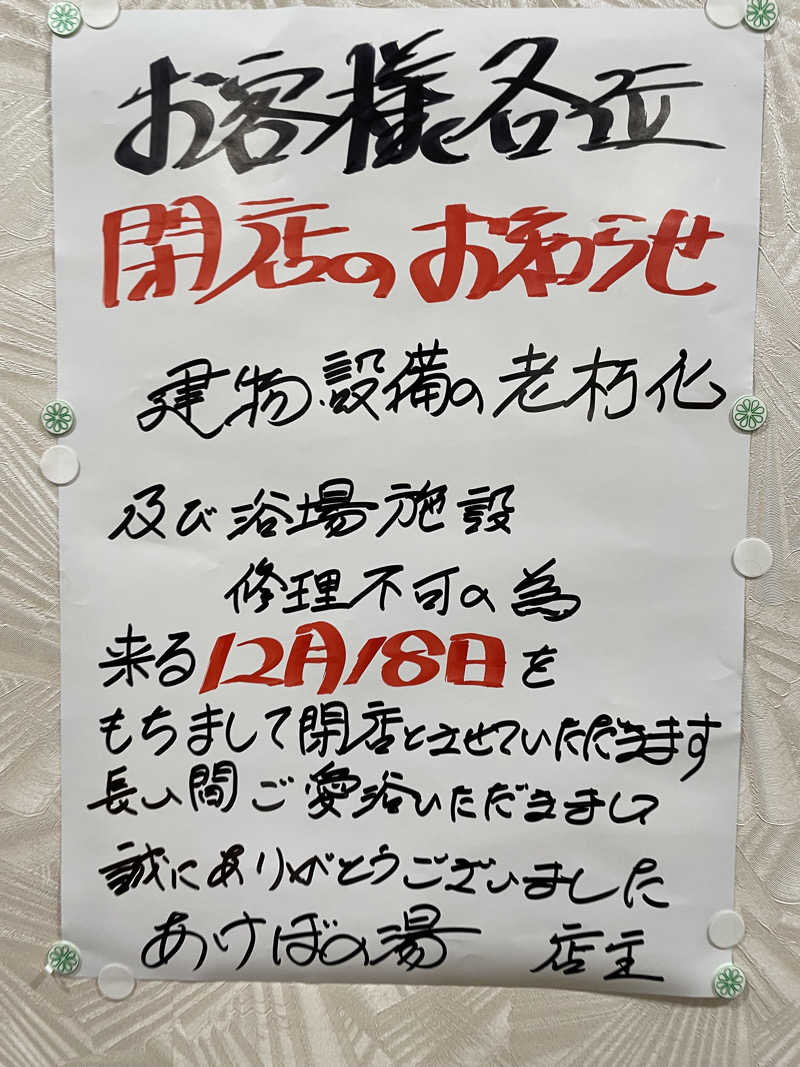 お客様各位
閉店のお知らせ
建物設備の老朽化
及び浴場施設
修理不可の為
来る12月18日を
もちまして閉店とさせていただきます
長い間ご愛浴いただきまして
誠にありがとうございました
あけぼの湯 店主